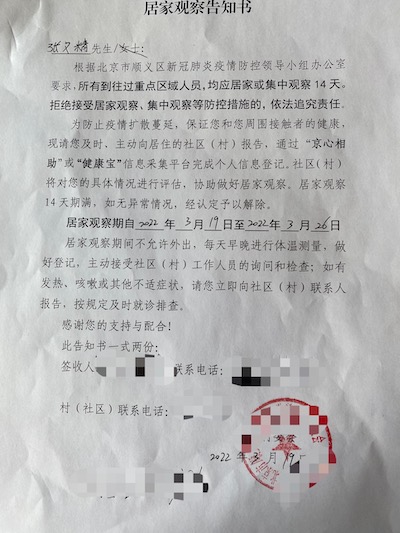 居家观察告知书
先生/女士：
根据北京市顺义区新冠肺炎疫情防控领导小组办公室
要求，所有到往过重点区域人员，均应居家或集中观察 14 天。
拒绝接受居家观察、集中观察等防控措施的，依法追究责任。
为防止疫情扩散蔓延，保证您和您周围接触者的健康，
现请您及时、主动向居住的社区（村）报告，通过“京心相
助”或“健康宝”信息采集平台完成个人信息登记。社区（村）
将对您的具体情况进行评估，协助做好居家观察。居家观察
14 天期满，如无异常情况，经认定予以解除。
居家观察期自2022 年 3 月 19 日至 2022 年 3 月 26 日
居家观察期间不允许外出，每天早晚进行体温测量，做
好登记，主动接受社区（村）工作人员的询问和检查；如有
发热、咳嗽或其他不适症状，请您立即向社区（村）联系人
报告，按规定及时就诊排查。
感谢您的支持与配合！
此告知书一式两份：
签收人 联系电话：
村（社区）联系电话：
2022 年 3 月 19 日